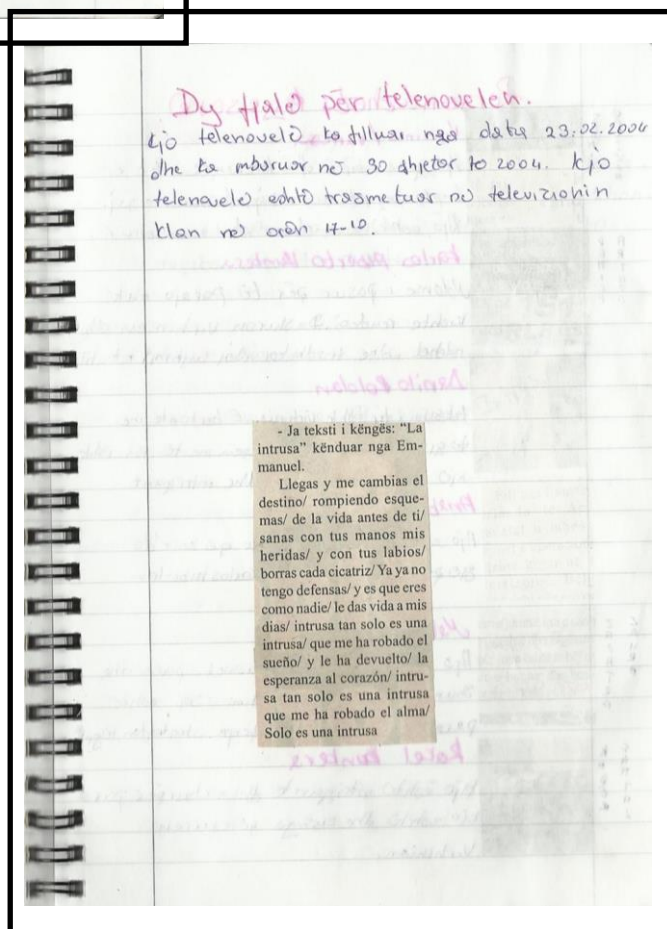 Dy fjalë për telenovelën.
Kjo telenovelë ka filluar nga data 23.02.2004
dhe ka mbaruar në 30 dhjetor të 2004. Kjo
telenovelë eshtë trasmetuar në televizionin
Klan në orën 17-10.
- Ja teksti i këngës: "La
intrusa" kënduar nga Em-
manuel.
Llegas y me cambias el
destino/ rompiendo esque-
mas/ de la vida antes de ti/
sanas con tus manos mis
heridas/ y con tus labios/
borras cada cicatriz/ Ya ya no
tengo defensas/ y es que eres
como nadie/ le das vida a mis
dias/ intrusa tan solo es una
intrusa/ que me ha robado el
sueño/ y le ha devuelto/ la
esperanza al corazón/ intru-
sa tan solo es una intrusa
que me ha robado el alma/
Solo es una intrusa